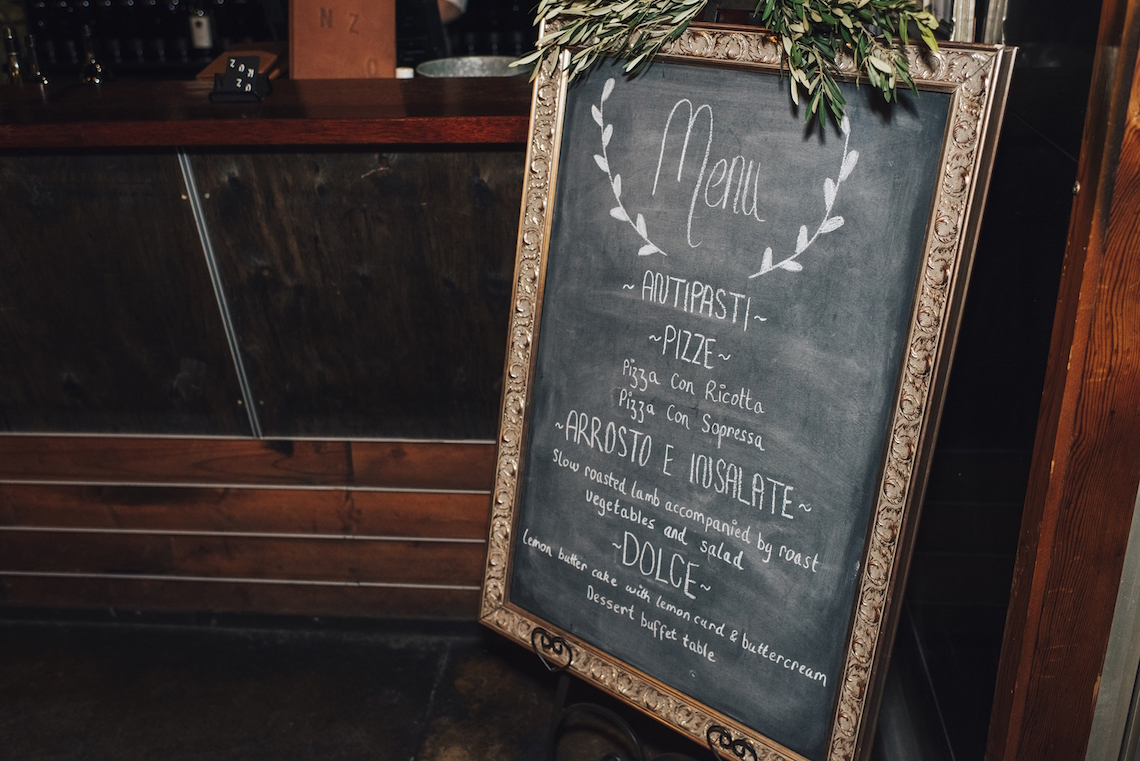 N Z
Menu
~ ANTIPASTI ~
~ PIZZE ~
Pizza Con Ricotta
Pizza Con Sopressa
~ARROSTO E INSALATE~
Slow roasted lamb accompanied by roast
vegetables and salad
~DOLCE~
lemon butter cake with lemon curd & buttercream
Dessert buffet table